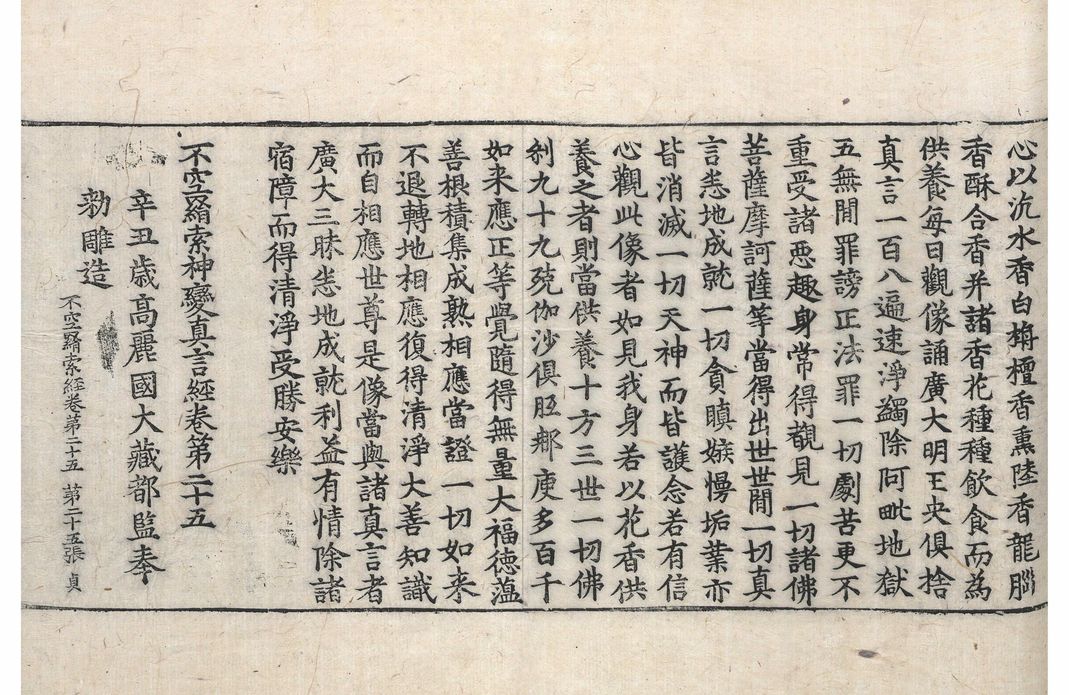 心以沉水香白栴檀香熏陸香龍腦
香酥合香并諸香花種種飲食而為
供養每日觀像誦廣大明王央俱捨
真言一百八遍速淨蠲除阿毗地獄
五無間罪謗正法罪一切劇苦更不
重受諸惡趣身常得覩見一切諸佛
菩薩摩訶薩等當得出世世間一切真
言悉地成就一切貪瞋嫉慢垢業亦
皆消滅一切天神而皆護念若有信
心觀此像者如見我身若以花香供
養之者則當供養十方三世一切佛
剎九十九殑伽沙俱胝那庾多百千
如来應正等覺隨得無量大福德蘊
善根積集成熟相應當證一切如来
不退轉地相應復得清淨大善知識
而自相應世尊是像當與諸真言者
廣大三昧悉地成就利益有情除諸
宿障而得清淨受勝安樂
不空羂索神變真言經卷第二十五
辛丑歲高麗國大藏都監奉
勑雕造
不空羂索經卷第二十五 第二十五張 貞